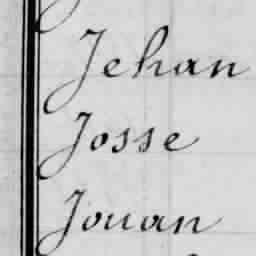 Jehan
Josse
Jouan